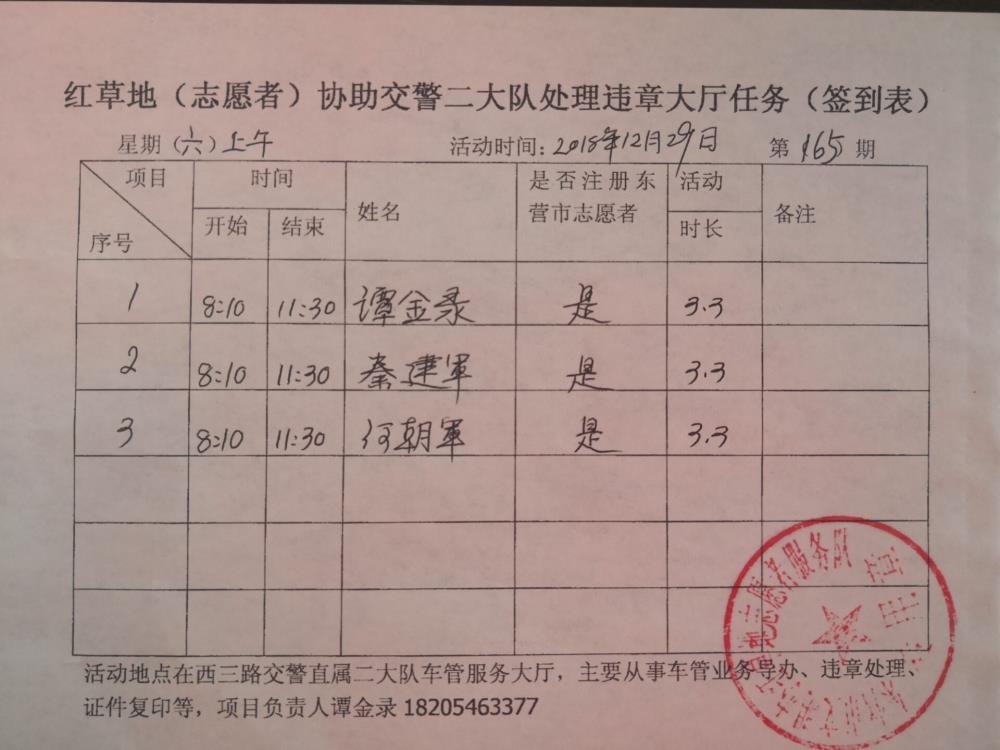 红草地（志愿者）协助交警二大队处理违章大厅任务（签到表）
星期（六）上午 活动时间：2018年12月29日 第 165 期
项目 时间 姓名 是否注册东 活动 备注
营市志愿者
序号 开始 结束 时长
1 8:10 11:30 谭金录 是 3.3
2 8:10 11:30 秦建军 是 3.3
3 8:10 11:30 何朝军 是 3.3
志愿者服务队
活动地点在西三路交警直属二大队车管服务大厅，主要从事车管业务导办、违章处理、
证件复印等，项目负责人谭金录 18205463377